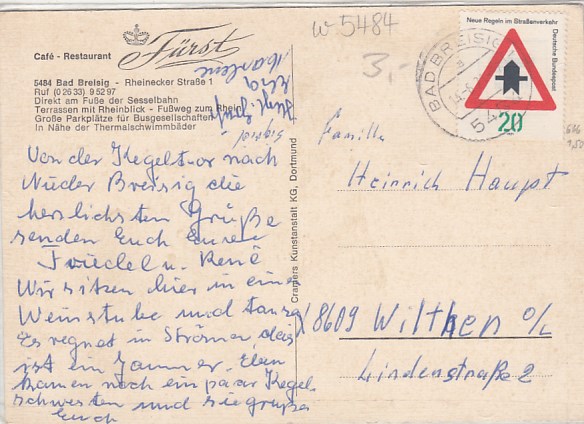 Café - Restaurant Fürst
5484 Bad Breisig - Rheinecker Straße 1
Ruf (0 26 33) 9 52 97
Direkt am Fuße der Sesselbahn
Terrassen mit Rheinblick - Fußweg zum Rhein
Große Parkplätze für Busgesellschaften
In Nähe der Thermalschwimmbäder
Von der Kegeltour nach
Nieder Breisig die
herzlichsten Grüße
senden Euch Eure
Friedel u. René
Wir sitzen hier in einer
Weinstube und
Es regnet in Strömen, das
ist ein Jammer. Eben
kamen noch ein paar Kegel
schwestern und
Euch
Marlene
Cramers Kunstanstalt KG, Dortmund
W 5484
3,-
BAD BREISIG
Neue Regeln im Straßenverkehr
Deutsche Bundespost
20
Familie
Heinrich Haupt
8609 Wilthen O/L
Lindenstraße 2